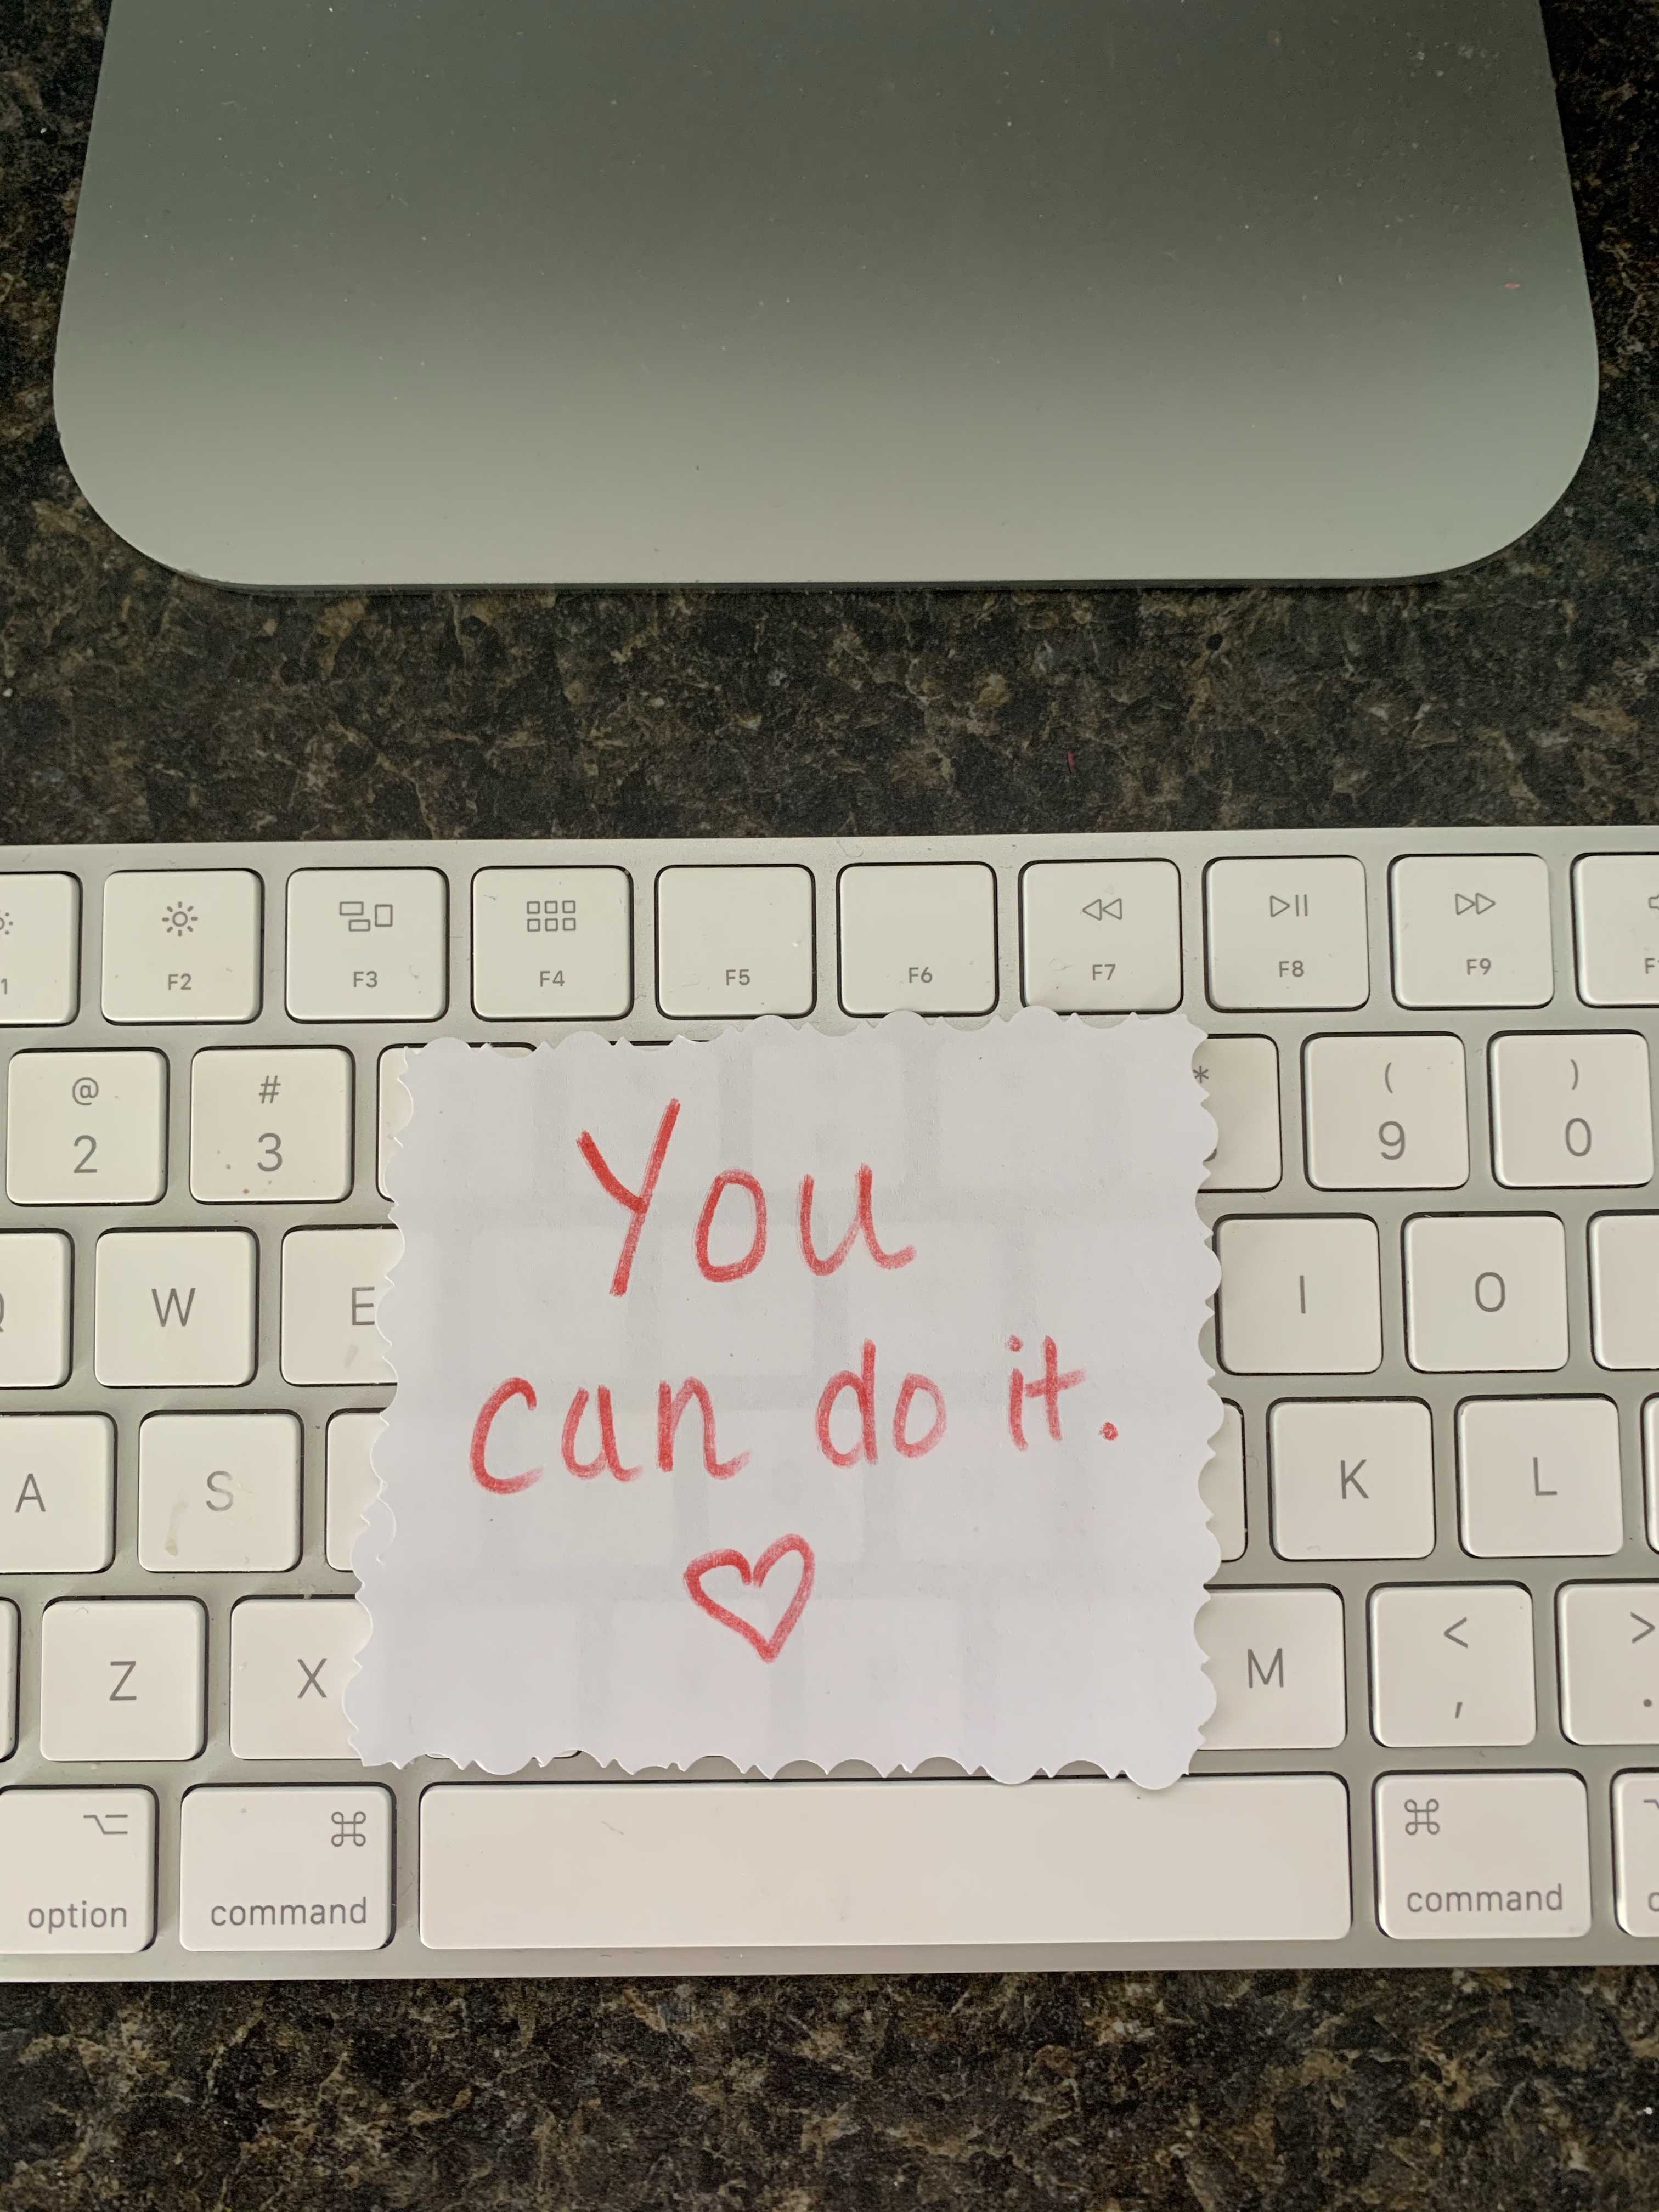 F2 F3 F4 F5 F6 F7 F8 F9
@ # * ( )
2 3 9 0
W E I O
A S K L
Z X M < >
, .
option command command
You
can do it.